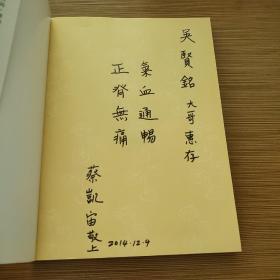 吳賢銘大哥惠存
氣血通暢
正脊無痛
蔡凱宙敬上
2014.12.4